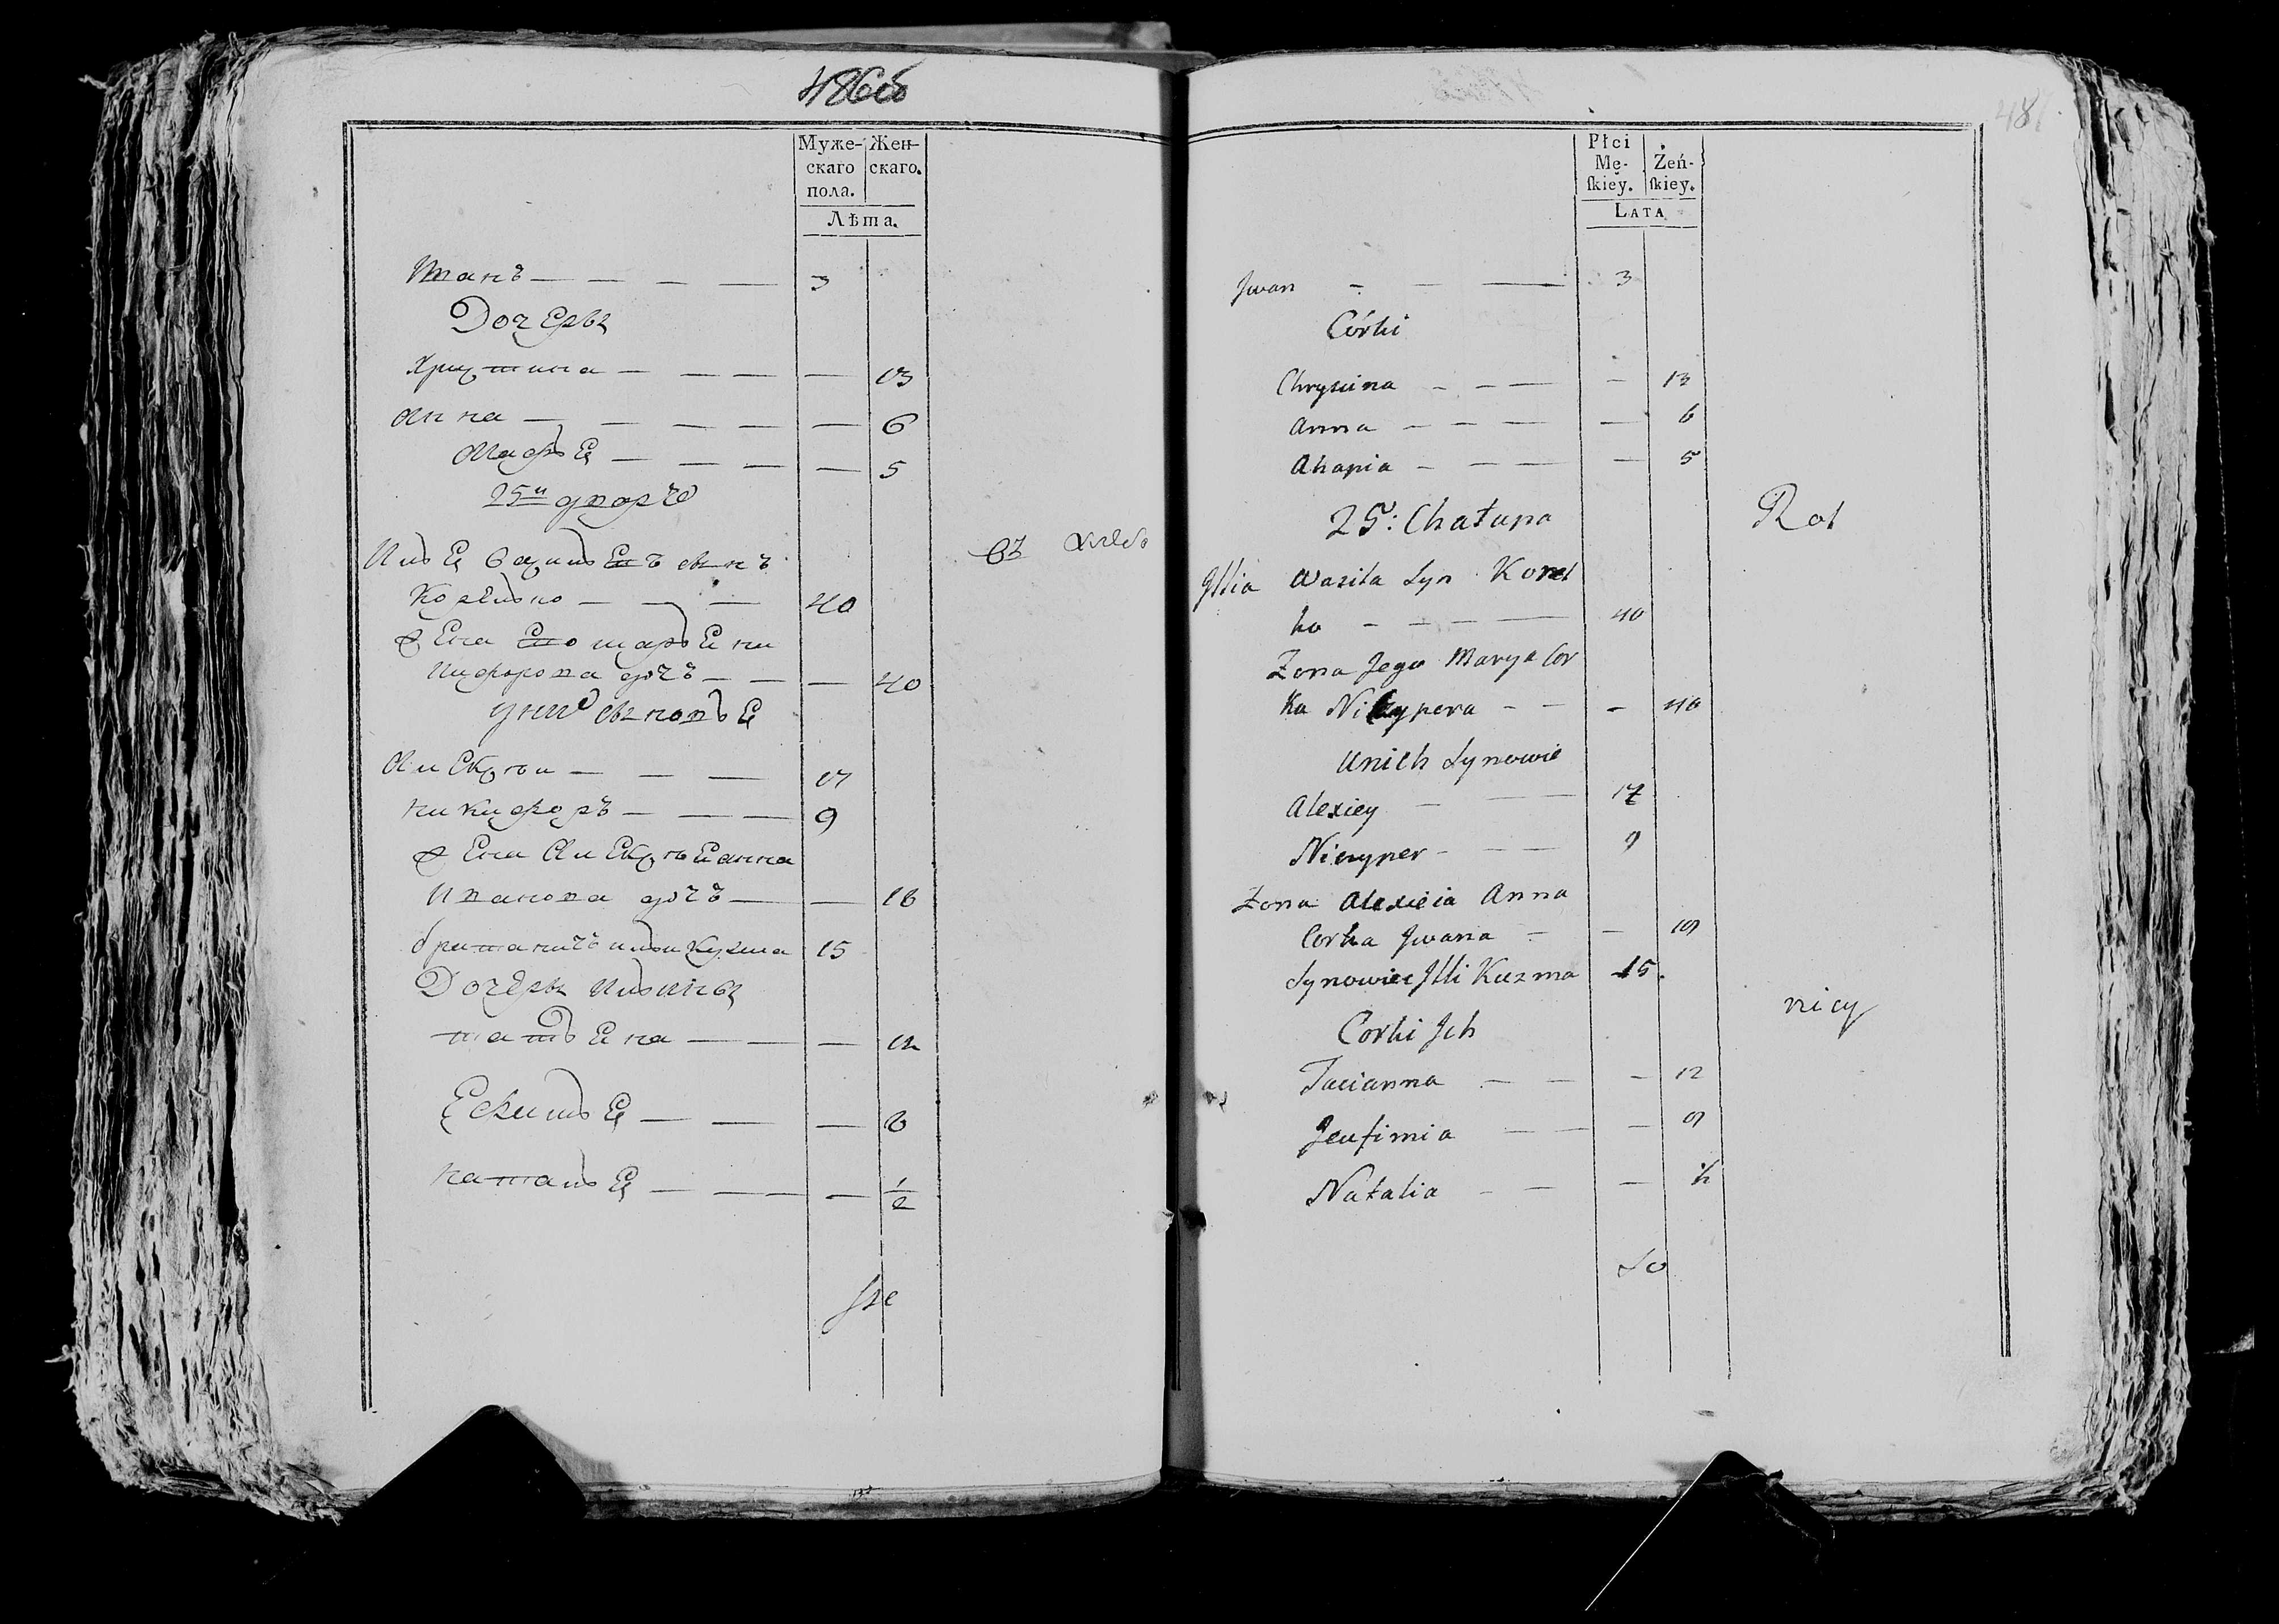 486об
Муже-
скаго
пола.
Жен-
скаго.
Лѣта.
Иванъ — — — — 3
Дочеры
Христина — — — — — 13
Анна — — — — — — 6
— — — — 5
25й дворъ
Илья Василь сынъ
— — — 40
Жена Его Марья
Никифорова дочъ — — — 40
У них сыновья
Алексѣи — — — 17
Никифоръ — — — 9
Жена Алексѣя Анна
Иванова дочъ — — 18
Кузма 15
Дочеры
Татьяна — — — 12
— — — 8
Наталья — — — — 1/2
въ
Płci
Mę-
ſkiey.
Żeń-
ſkiey.
LATA
Jwan — — — 3
Córki
Chrystina — — — — 13
Anna — — — — — 6
Ahapia — — — — 5
25: Chałupa
Rol
Jllia Wasila Syn Korel
ko — — — — 40
Zona Jego Marya Cor
ka Nicypera — — — 40
Unich Synowie
Alexiey — — 17
Nicyper — — — 9
Zona Alexieia Anna
Corka Jwana — — 19
Synowiec Jlli Kuzma 15.
nicy
Corki Jch
Tacianna — — — 12
Jeufimia — — — 9
Natalia — — — 1/2